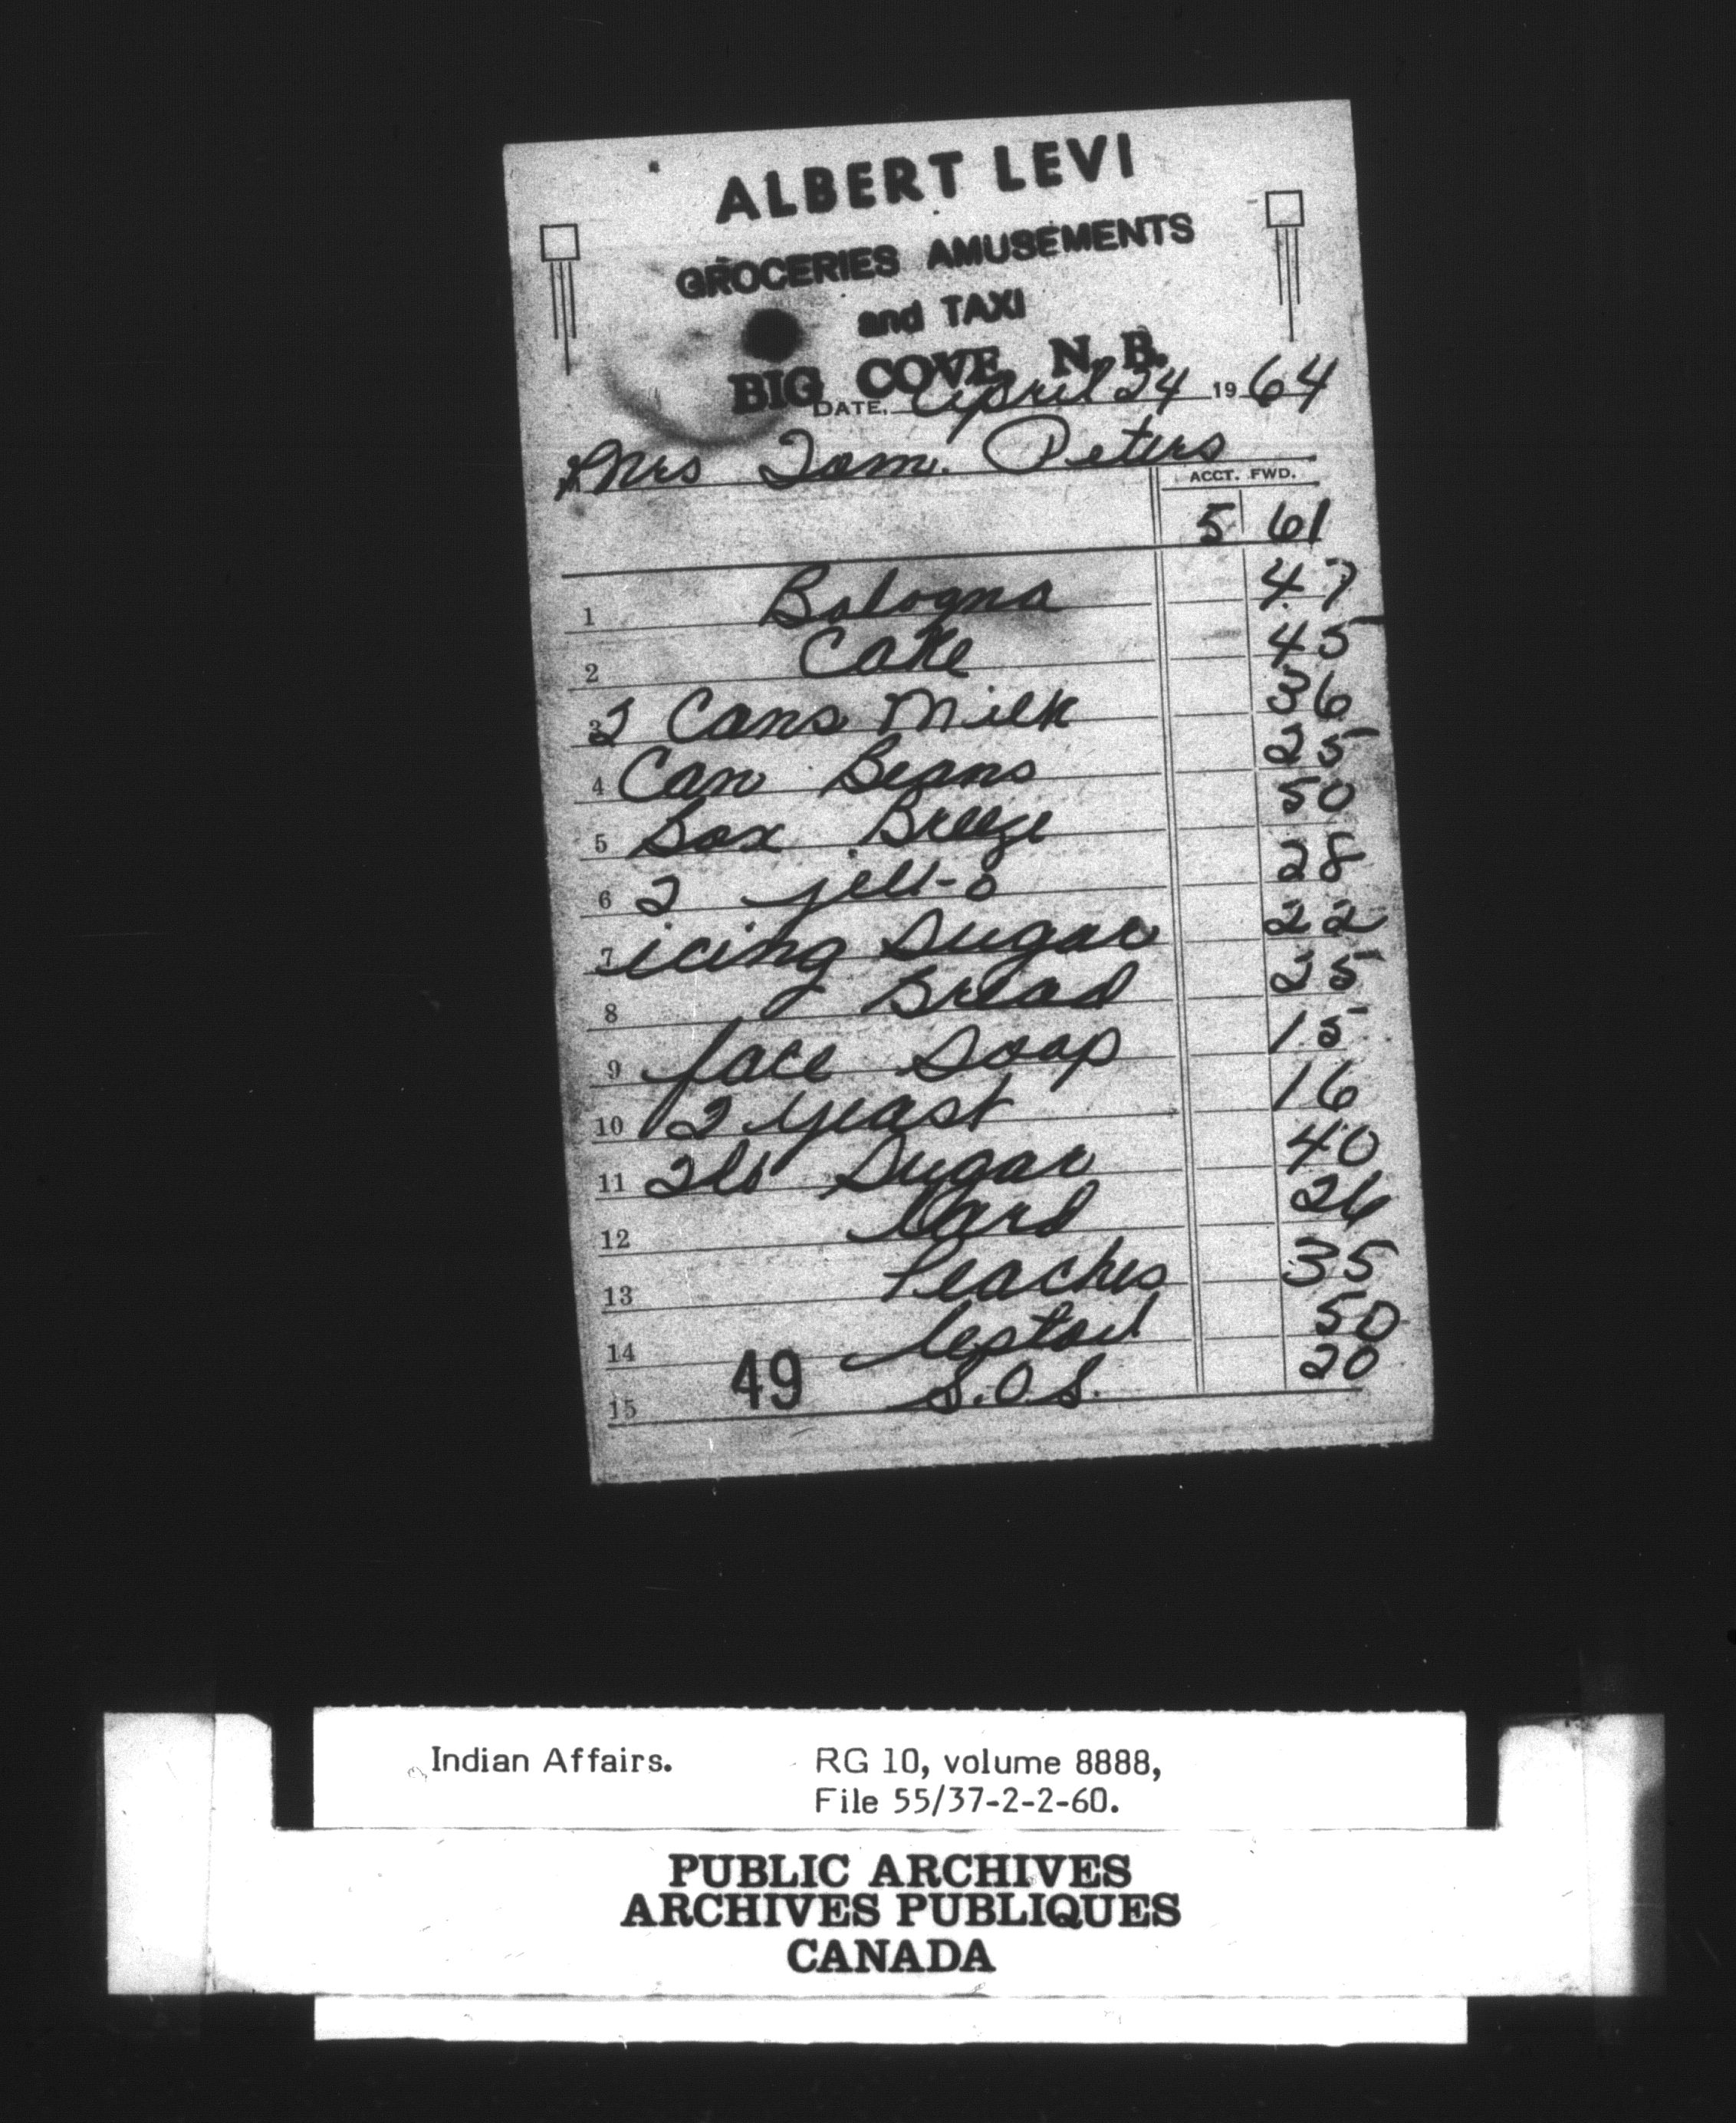 ALBERT LEVI
GROCERIES AMUSEMENTS
and TAXI
BIG COVE, N. B.
DATE, April 24 1964
Mrs Tom. Peters
ACCT. FWD.
5 61
1 Bologna 47
2 Cake 45
3 2 Cans Milk 36
4 Can Beans 25
5 Box Breeze 50
6 2 jell-o 28
7 icing Sugar 22
8 Bread 25
9 face Soap 15
10 2 yeast 16
11 2 lb Sugar 40
12 Lard 26
13 Peaches 35
14 lestoil 50
15 S.O.S. 20
49
Indian Affairs. RG 10, volume 8888,
File 55/37-2-2-60.
PUBLIC ARCHIVES
ARCHIVES PUBLIQUES
CANADA